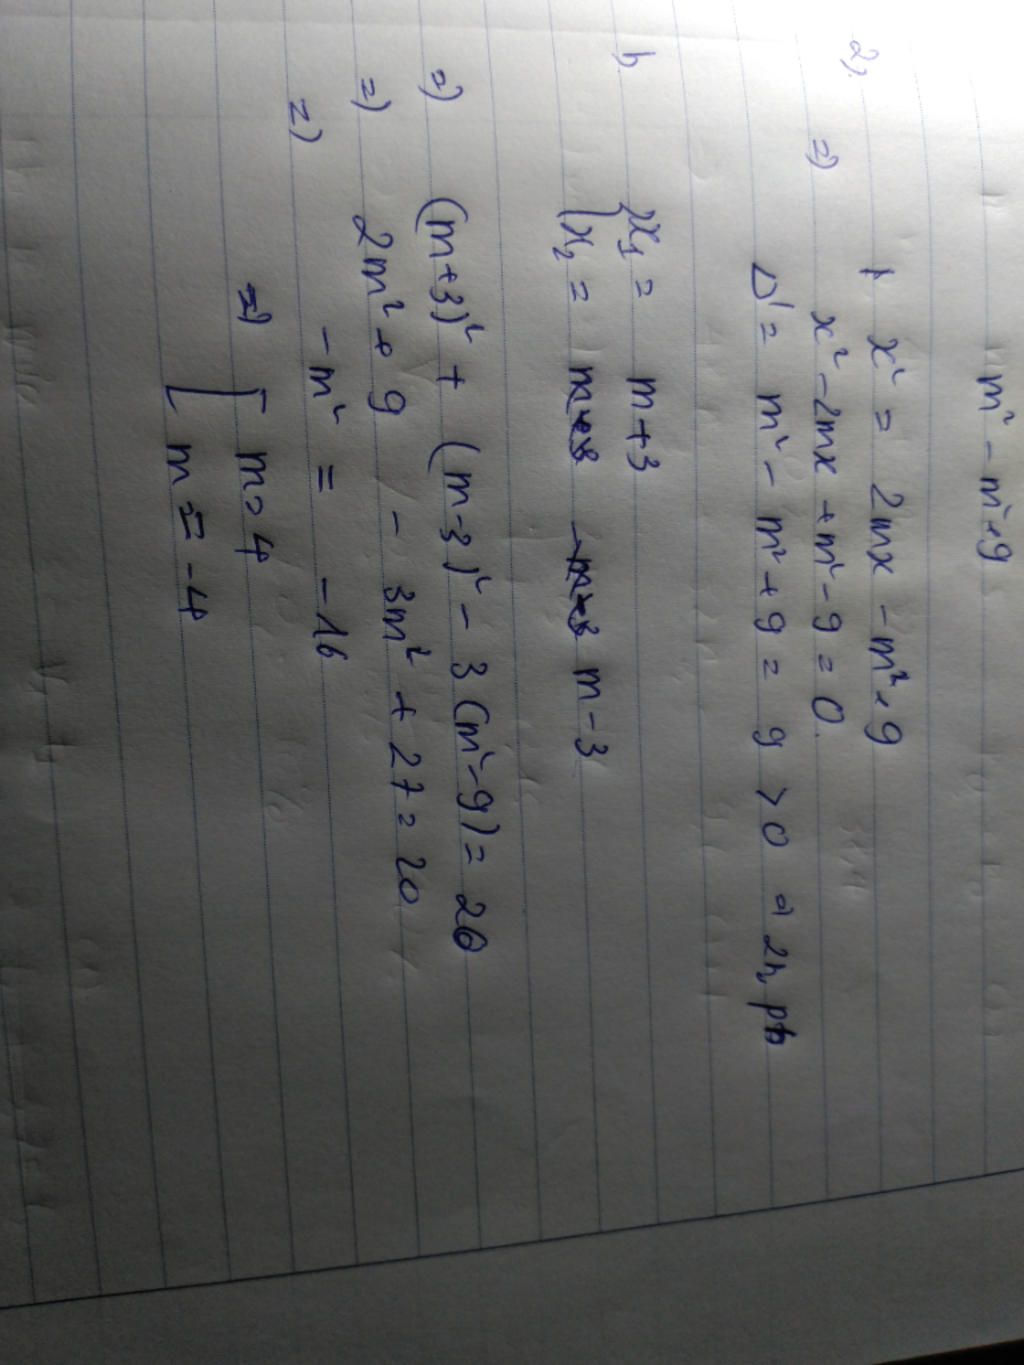 m² - m² + 9
2). 1 x² = 2mx - m² + 9
=) x² - 2mx + m² - 9 = 0.
Δ' = m² - m² + 9 = 9 > 0 => 2n pb
b x₁ = m + 3
x₂ = m - 3
=) (m+3)² + (m-3)² - 3(m²-9) = 20
=) 2m² + 9 - 3m² + 27 = 20
=) -m² = -16
=) [ m = 4
m = -4